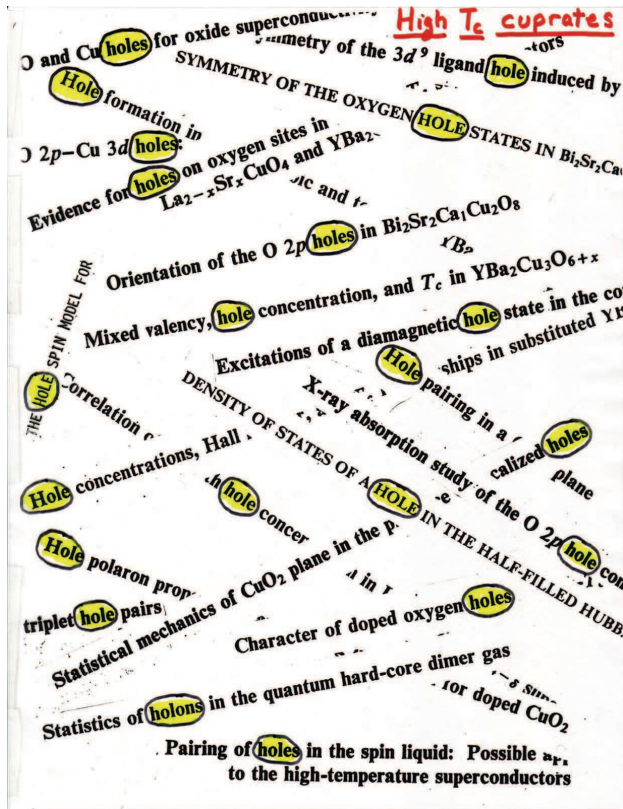 High Tc cuprates
O and Cu holes for oxide
symmetry of the 3d⁹ ligand hole induced by
SYMMETRY OF THE OXYGEN HOLE STATES IN Bi₂Sr₂Ca
Hole formation in
O 2p–Cu 3d holes:
Evidence for holes on oxygen sites in
La₂₋ₓSrₓCuO₄ and YBa₂₋
Orientation of the O 2p holes in Bi₂Sr₂Ca₁Cu₂O₈
Mixed valency, hole concentration, and Tc in YBa₂Cu₃O₆₊ₓ
THE HOLE SPIN MODEL FOR
Excitations of a diamagnetic hole state in the
ships in substituted
Hole pairing in a
plane
Correlation
DENSITY OF STATES OF A HOLE IN THE HALF-FILLED HUBB
X-ray absorption study of the O 2p hole
calized holes
Hole concentrations, Hall
hole
Hole polaron
Statistical mechanics of CuO₂ plane in the
triplet hole pairs
Character of doped oxygen holes
Statistics of holons in the quantum hard-core dimer gas
for doped CuO₂
Pairing of holes in the spin liquid: Possible
to the high-temperature superconductors